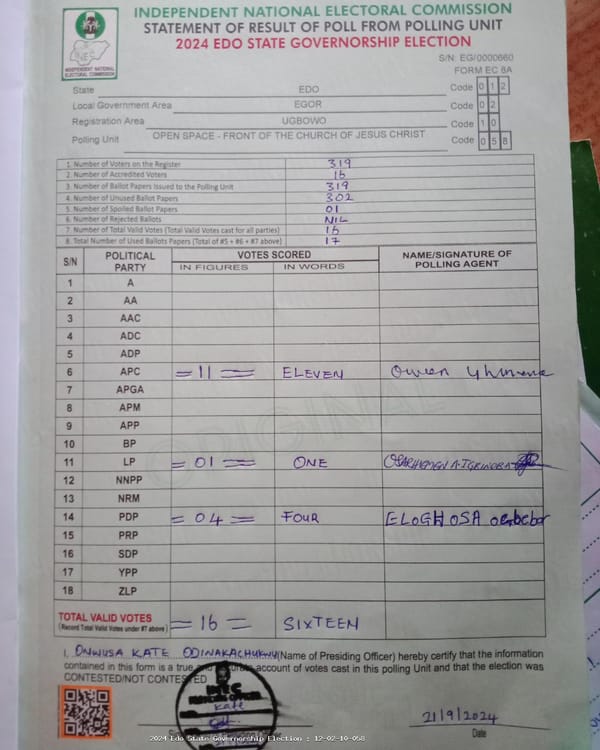 INDEPENDENT NATIONAL ELECTORAL COMMISSION
STATEMENT OF RESULT OF POLL FROM POLLING UNIT
2024 EDO STATE GOVERNORSHIP ELECTION
INDEPENDENT NATIONAL
ELECTORAL COMMISSION
S/N: EG/0000660
FORM EC 8A
State EDO Code 0 1 2
Local Government Area EGOR Code 0 2
Registration Area UGBOWO Code 1 0
Polling Unit OPEN SPACE - FRONT OF THE CHURCH OF JESUS CHRIST Code 0 5 8
1. Number of Voters on the Register 319
2. Number of Accredited Voters 16
3. Number of Ballot Papers Issued to the Polling Unit 319
4. Number of Unused Ballot Papers 302
5. Number of Spoiled Ballot Papers 01
6. Number of Rejected Ballots NIL
7. Number of Total Valid Votes (Total Valid Votes cast for all parties) 16
8. Total Number of Used Ballots Papers (Total of #5 + #6 + #7 above) 17
S/N POLITICAL PARTY VOTES SCORED NAME/SIGNATURE OF POLLING AGENT
IN FIGURES IN WORDS
1 A
2 AA
3 AAC
4 ADC
5 ADP
6 APC = 11 = ELEVEN Owen
7 APGA
8 APM
9 APP
10 BP
11 LP = 01 = ONE
12 NNPP
13 NRM
14 PDP = 04 = FOUR ELOGHOSA
15 PRP
16 SDP
17 YPP
18 ZLP
TOTAL VALID VOTES = 16 = SIXTEEN
(Record Total Valid Votes under #7 above)
I, ONWUSA KATE ODINAKACHUKWU (Name of Presiding Officer) hereby certify that the information
contained in this form is a true and accurate account of votes cast in this polling Unit and that the election was
CONTESTED/NOT CONTESTED
INEC
Kate
21/9/2024
Date
2024 Edo State Governorship Election : 12-02-10-058